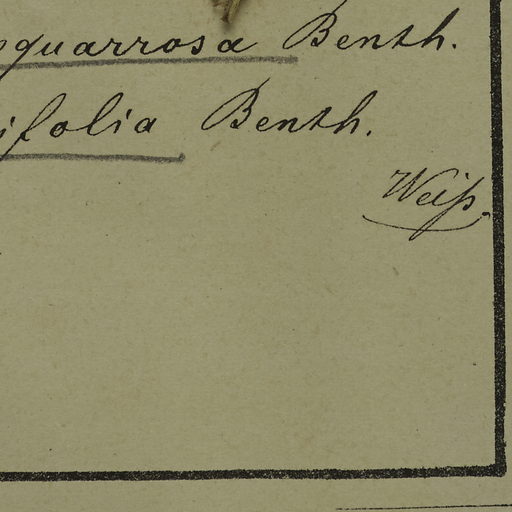 squarrosa Benth.
ifolia Benth.
Weiß.